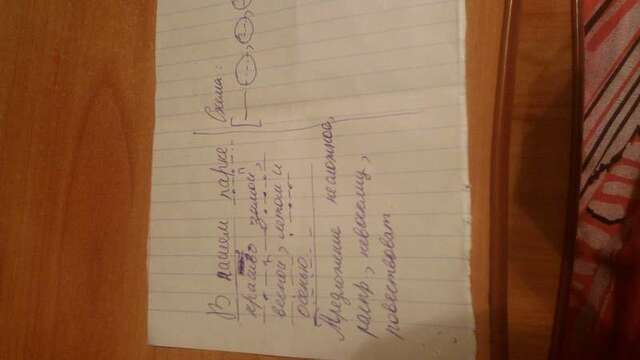 В нашем парке
красиво зимой,
весной, летом и
осенью.
Предложение несложное,
распр., невосклиц,
повествоват.
Схема: